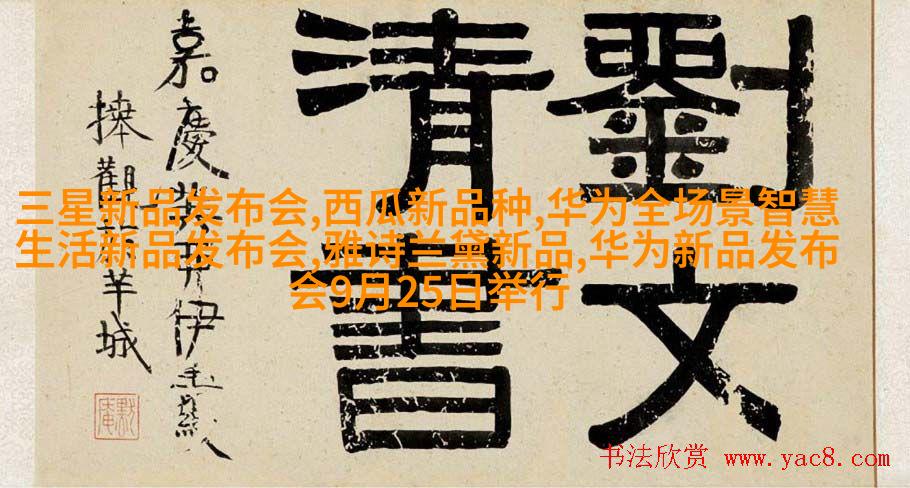 劉文
清書
嘉慶 伊秉綬
捧觀 羊城
三星新品发布会,西瓜新品种,华为全场景智慧
生活新品发布会,雅诗兰黛新品,华为新品发布
会9月25日举行
书法欣赏 www.yac8.com